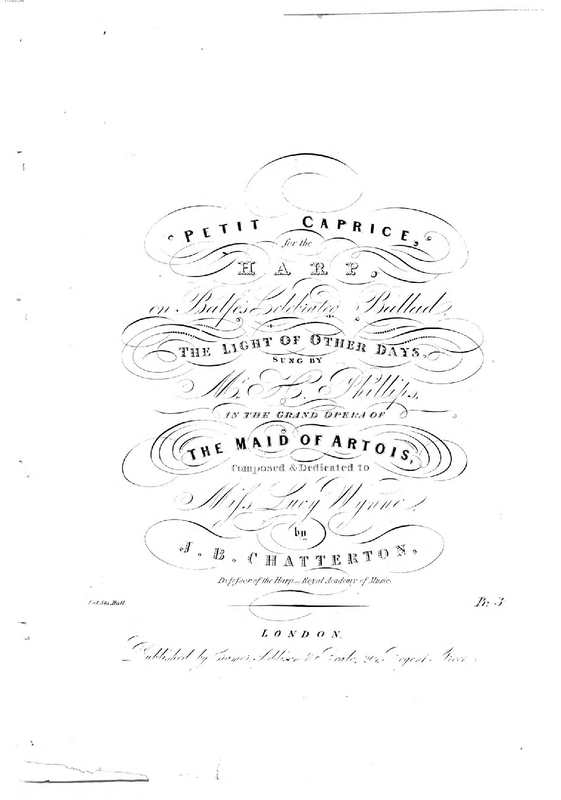 PETIT CAPRICE,
for the
HARP,
on Balfe's Celebrated Ballad,
THE LIGHT OF OTHER DAYS,
SUNG BY
Mr. H. Phillips,
IN THE GRAND OPERA OF
THE MAID OF ARTOIS,
Composed & Dedicated to
Miſs Lucy Wynne,
by
J. B. CHATTERTON,
Profeſsor of the Harp, Royal Academy of Music.
Ent. Sta. Hall.
Pr. 3
LONDON.
Published by Cramer, Addison & Beale, 201, Regent Street